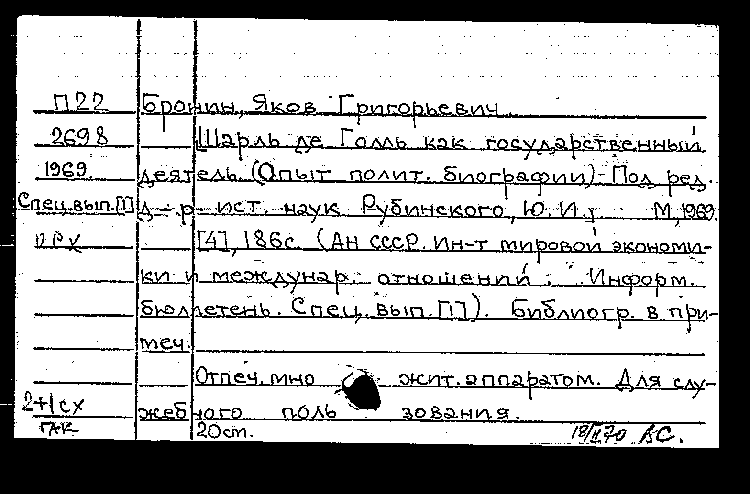 П22 Бронин, Яков Григорьевич
2698 Шарль де Голль как государственный
1969 деятель. (Опыт полит. биографии). Под ред.
Спец.вып.[1] д-р ист. наук Рубинского, Ю.И. М, 1969.
ПРХ [4], 186с. (АН СССР. Ин-т мировой экономи-
ки и междунар. отношений. Информ.
бюллетень. Спец. вып. [1]). Библиогр. в при-
меч.
Отпеч. множит. аппаратом. Для слу-
2+1сх жебного пользования.
ГАК 20ст. 70 ВС.